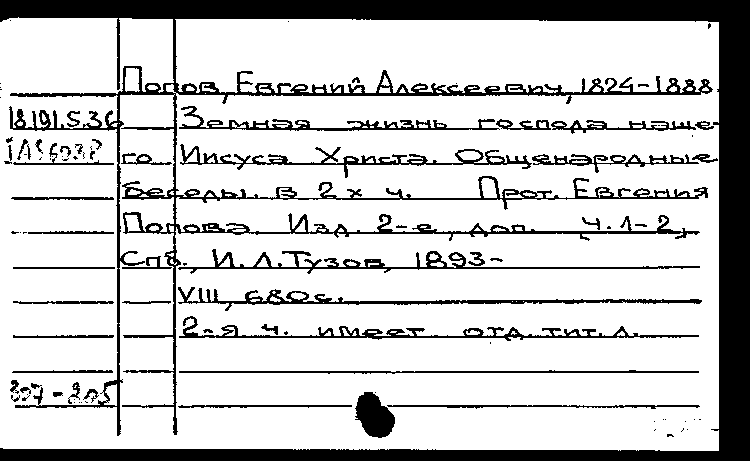 Попов, Евгений Алексеевич, 1824-1888.
18.191.5.36 Земная жизнь господа наше-
го Иисуса Христа. Общенародные
беседы. В 2х ч. Прот. Евгения
Попова. Изд. 2-е, доп. Ч. 1-2,
Спб., И.Л.Тузов, 1893-
VIII, 680с.
2-я ч. имеет отд. тит. л.
307-205